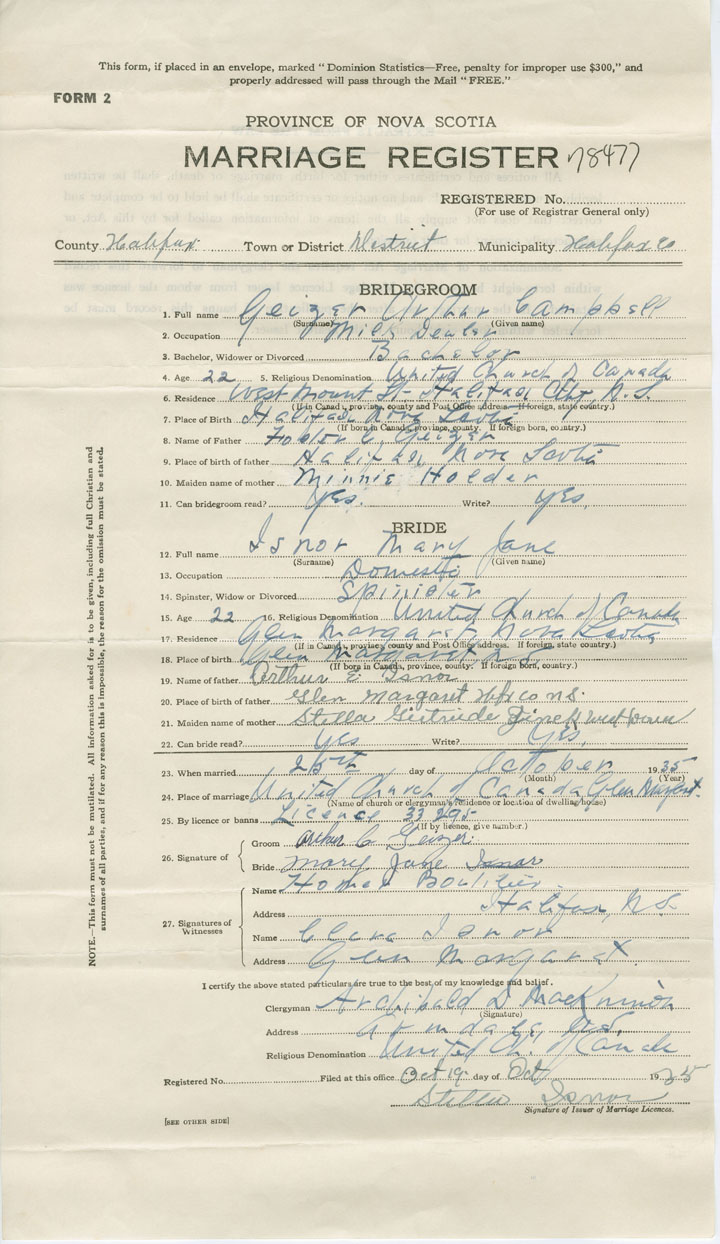 This form, if placed in an envelope, marked "Dominion Statistics—Free, penalty for improper use $300," and
properly addressed will pass through the Mail "FREE."
FORM 2
PROVINCE OF NOVA SCOTIA
MARRIAGE REGISTER 78477
REGISTERED No.
(For use of Registrar General only)
County Halifax Town or District District Municipality Halifax Co
BRIDEGROOM
1. Full name Geizer Arthur Campbell
(Surname) (Given name)
2. Occupation Milk Dealer
3. Bachelor, Widower or Divorced Bachelor
4. Age 22 5. Religious Denomination United Church of Canada
6. Residence West Mount St- Halifax City, N.S.
(If in Canada, province, county and Post Office address. If foreign, state country.)
7. Place of Birth Halifax Nova Scotia
(If born in Canada, province, county. If foreign born, country.)
8. Name of Father Geizer
9. Place of birth of father Halifax Nova Scotia
10. Maiden name of mother Minnie Holder
11. Can bridegroom read? Yes. Write? Yes.
BRIDE
12. Full name Isnor Mary Jane
(Surname) (Given name)
13. Occupation Domestic
14. Spinster, Widow or Divorced Spinister
15. Age 22 16. Religious Denomination United Church of Canada
17. Residence Glen Margaret Nova Scotia
(If in Canada, province, county and Post Office address. If foreign, state country.)
18. Place of birth Glen Margaret N.S
(If born in Canada, province, county. If foreign born, country.)
19. Name of father Arthur E. Isnor
20. Place of birth of father Glen Margaret Hfx co N.S.
21. Maiden name of mother Stella Gertrude
22. Can bride read? Yes Write? Yes.
23. When married 25th day of October 1935
(Month) (Year)
24. Place of marriage United Church of Canada Glen Margaret.
(Name of church or clergyman's residence or location of dwelling house)
25. By licence or banns Licence 33295
(If by licence, give number.)
26. Signature of
Groom Arthur C. Geizer.
Bride Mary Jane Isnor
27. Signatures of Witnesses
Name Homer Boutilier
Address Halifax, N.S.
Name Clara Isnor
Address Glen Margaret.
I certify the above stated particulars are true to the best of my knowledge and belief.
Clergyman Archibald D MacKinnon
(Signature)
Address N.S.
Religious Denomination United Ch. of Canada
Registered No. Filed at this office Oct 19 day of Oct 1935
Stella Isnor
Signature of Issuer of Marriage Licences.
[SEE OTHER SIDE]
NOTE.—This form must not be mutilated. All information asked for is to be given, including full Christian and
surnames of all parties, and if for any reason this is impossible, the reason for the omission must be stated.